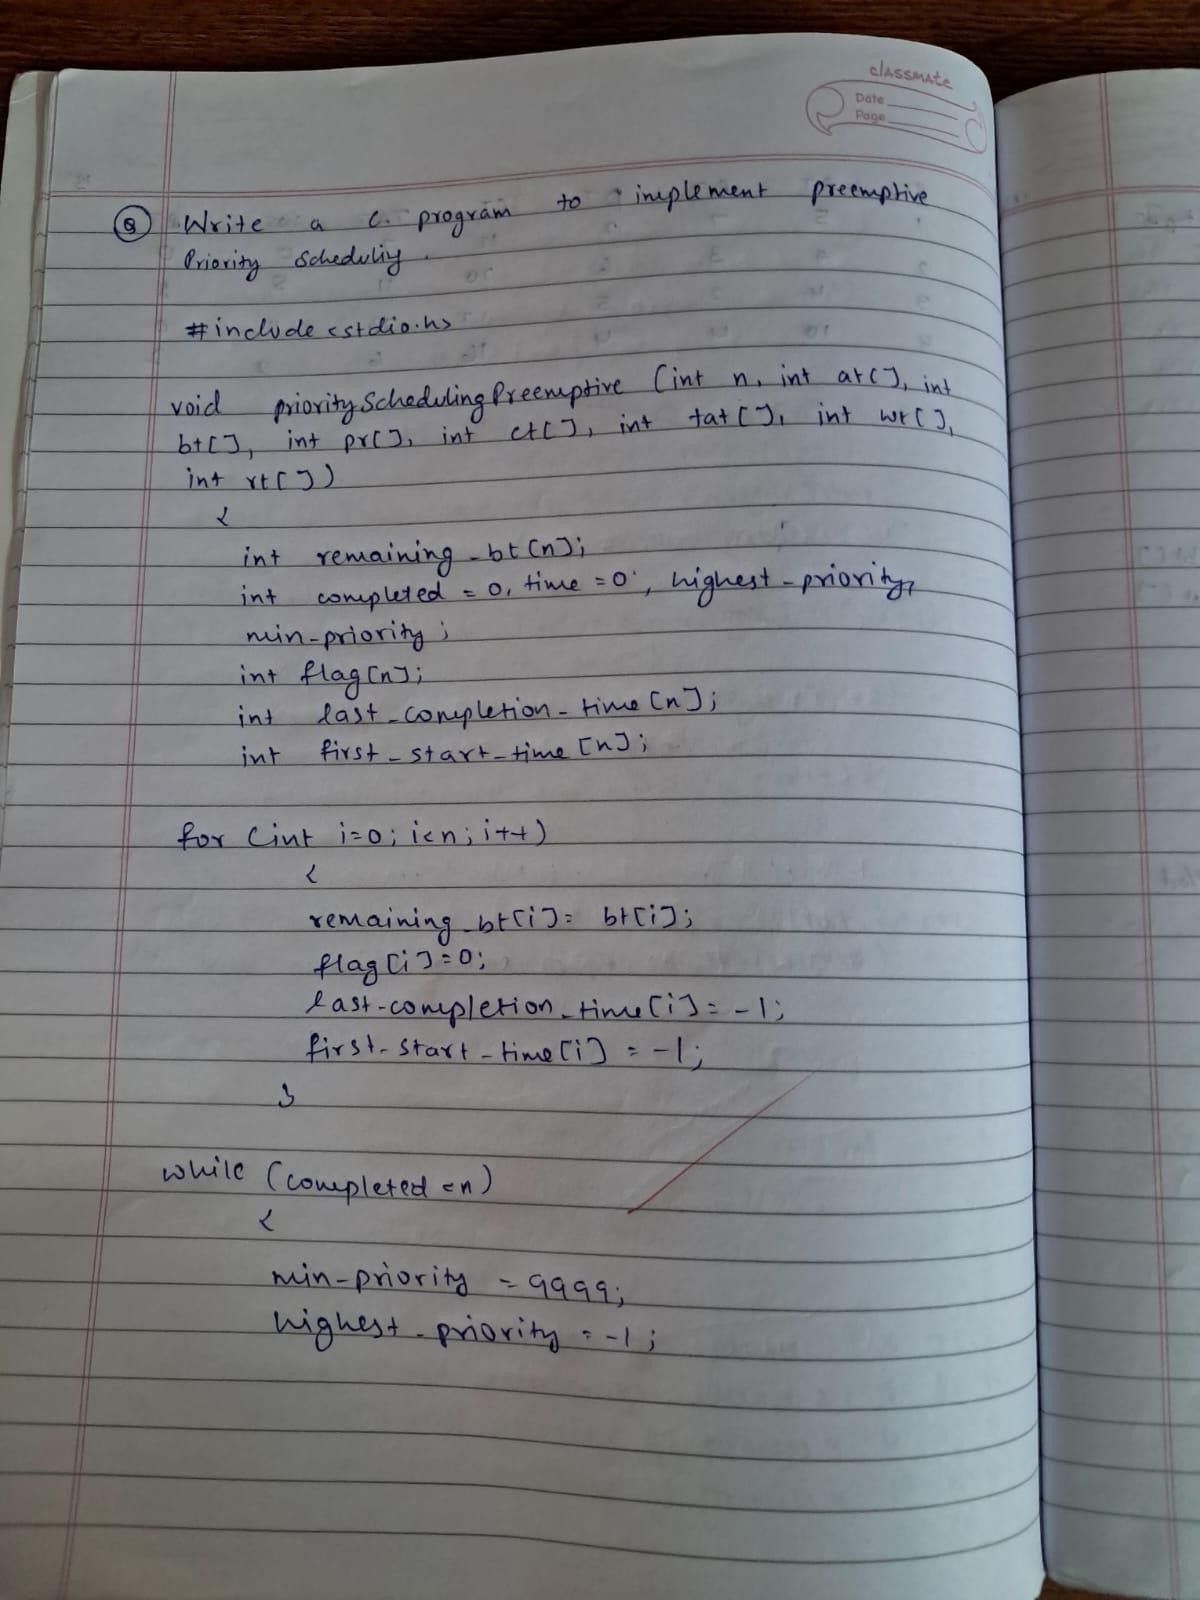 classmate
Date
Page
Q Write a C. program to implement preemptive
Priority Scheduling.
#include <stdio.h>
void prioritySchedulingPreemptive (int n, int at[], int
bt[], int pr[], int ct[], int tat[], int wt[],
int rt[])
{
int remaining_bt[n];
int completed = 0, time = 0, highest-priority,
min-priority;
int flag[n];
int last_completion_time[n];
int first_start_time[n];
for (int i=0; i<n; i++)
{
remaining_bt[i] = bt[i];
flag[i]=0;
last-completion_time[i] = -1;
first-start-time[i] = -1;
}
while (completed <n)
{
min-priority = 9999;
highest-priority = -1;